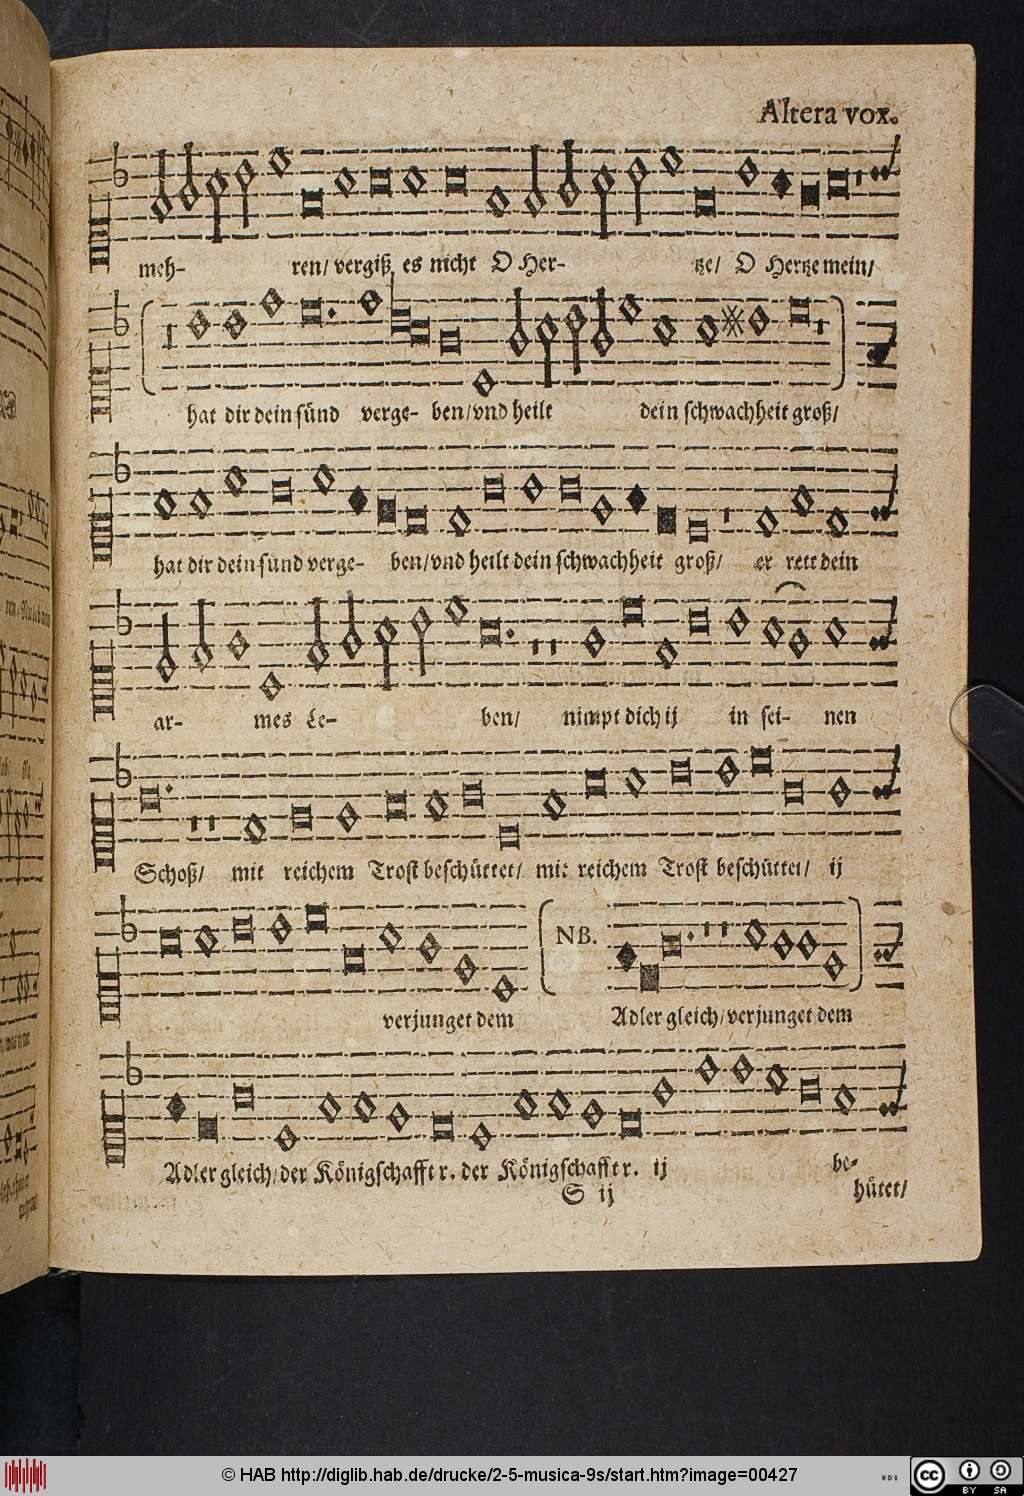 Altera vox.
meh- ren/ vergiß es nicht O Her- tze/ O Hertze mein/
hat dir dein sünd verge- ben/ vnd heilt dein schwachheit groß/
hat dir dein sünd verge- ben/ vnd heilt dein schwachheit groß/ er rett dein
ar- mes Le- ben/ nimpt dich ij in sei- nen
Schoß/ mit reichem Trost beschüttet/ mit reichem Trost beschüttet/ ij
NB.
verjunget dem Adler gleich/ verjunget dem
Adler gleich/ der König schafft r. der König schafft r. ij be-
S ij hütet/
© HAB http://diglib.hab.de/drucke/2-5-musica-9s/start.htm?image=00427
cc BY SA